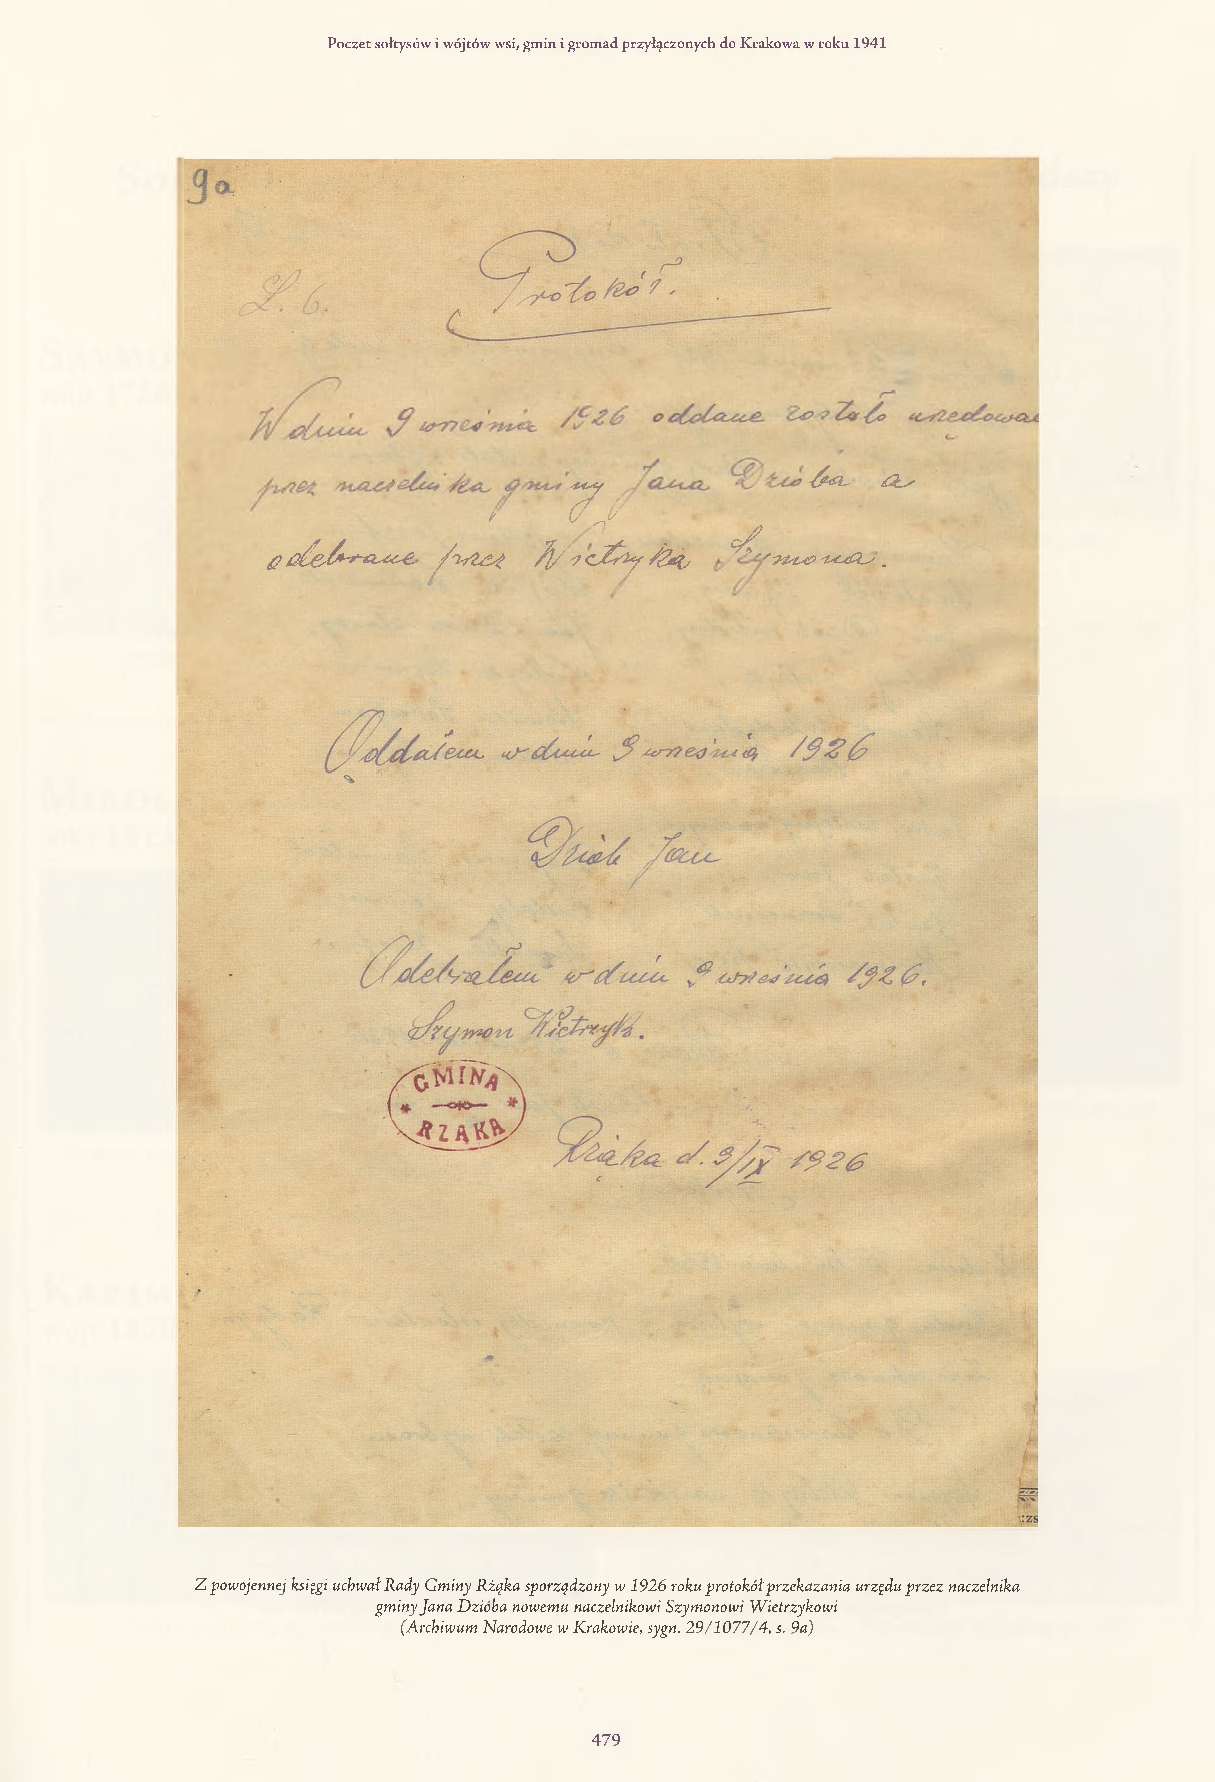 Poczet sołtysów i wójtów wsi, gmin i gromad przyłączonych do Krakowa w roku 1941
9a
L. 6.
Protokół.
W dniu 9 września 1926 oddane zostało urzędowa
przez naczelnika gminy Jana Dzióba a
odebrane przez Wietrzyka Szymona.
Oddałem w dniu 9 września 1926
Dziób Jan
Odebrałem w dniu 9 września 1926.
Szymon Wietrzyk.
GMINA
RZĄKA
Rżąka d. 9/IX 1926
Z powojennej księgi uchwał Rady Gminy Rżąka sporządzony w 1926 roku protokół przekazania urzędu przez naczelnika
gminy Jana Dzióba nowemu naczelnikowi Szymonowi Wietrzykowi
(Archiwum Narodowe w Krakowie, sygn. 29/1077/4, s. 9a)
479